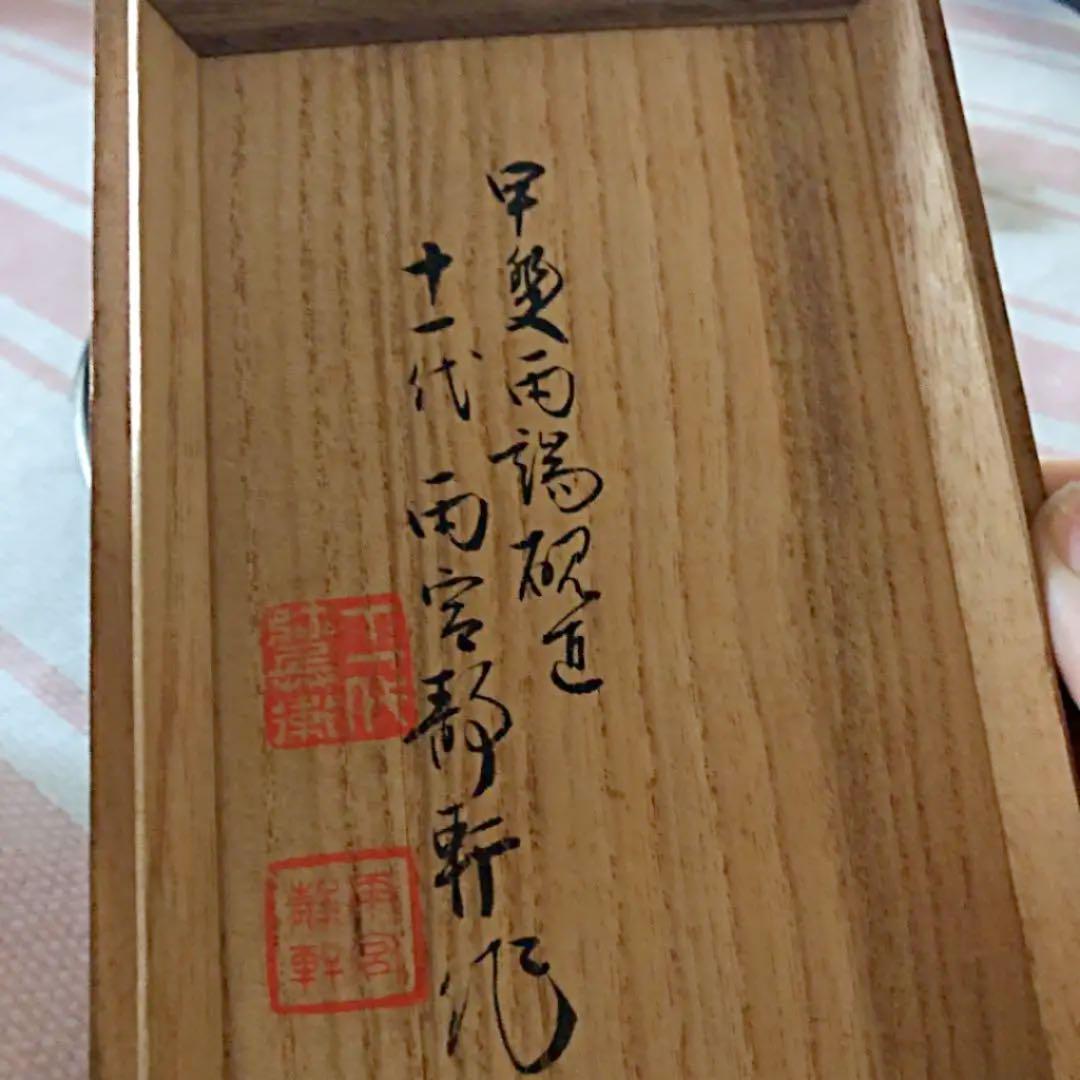 甲斐雨端硯匠
十一代 雨宮静軒作
十一代
弥兵衛
雨宮
静軒